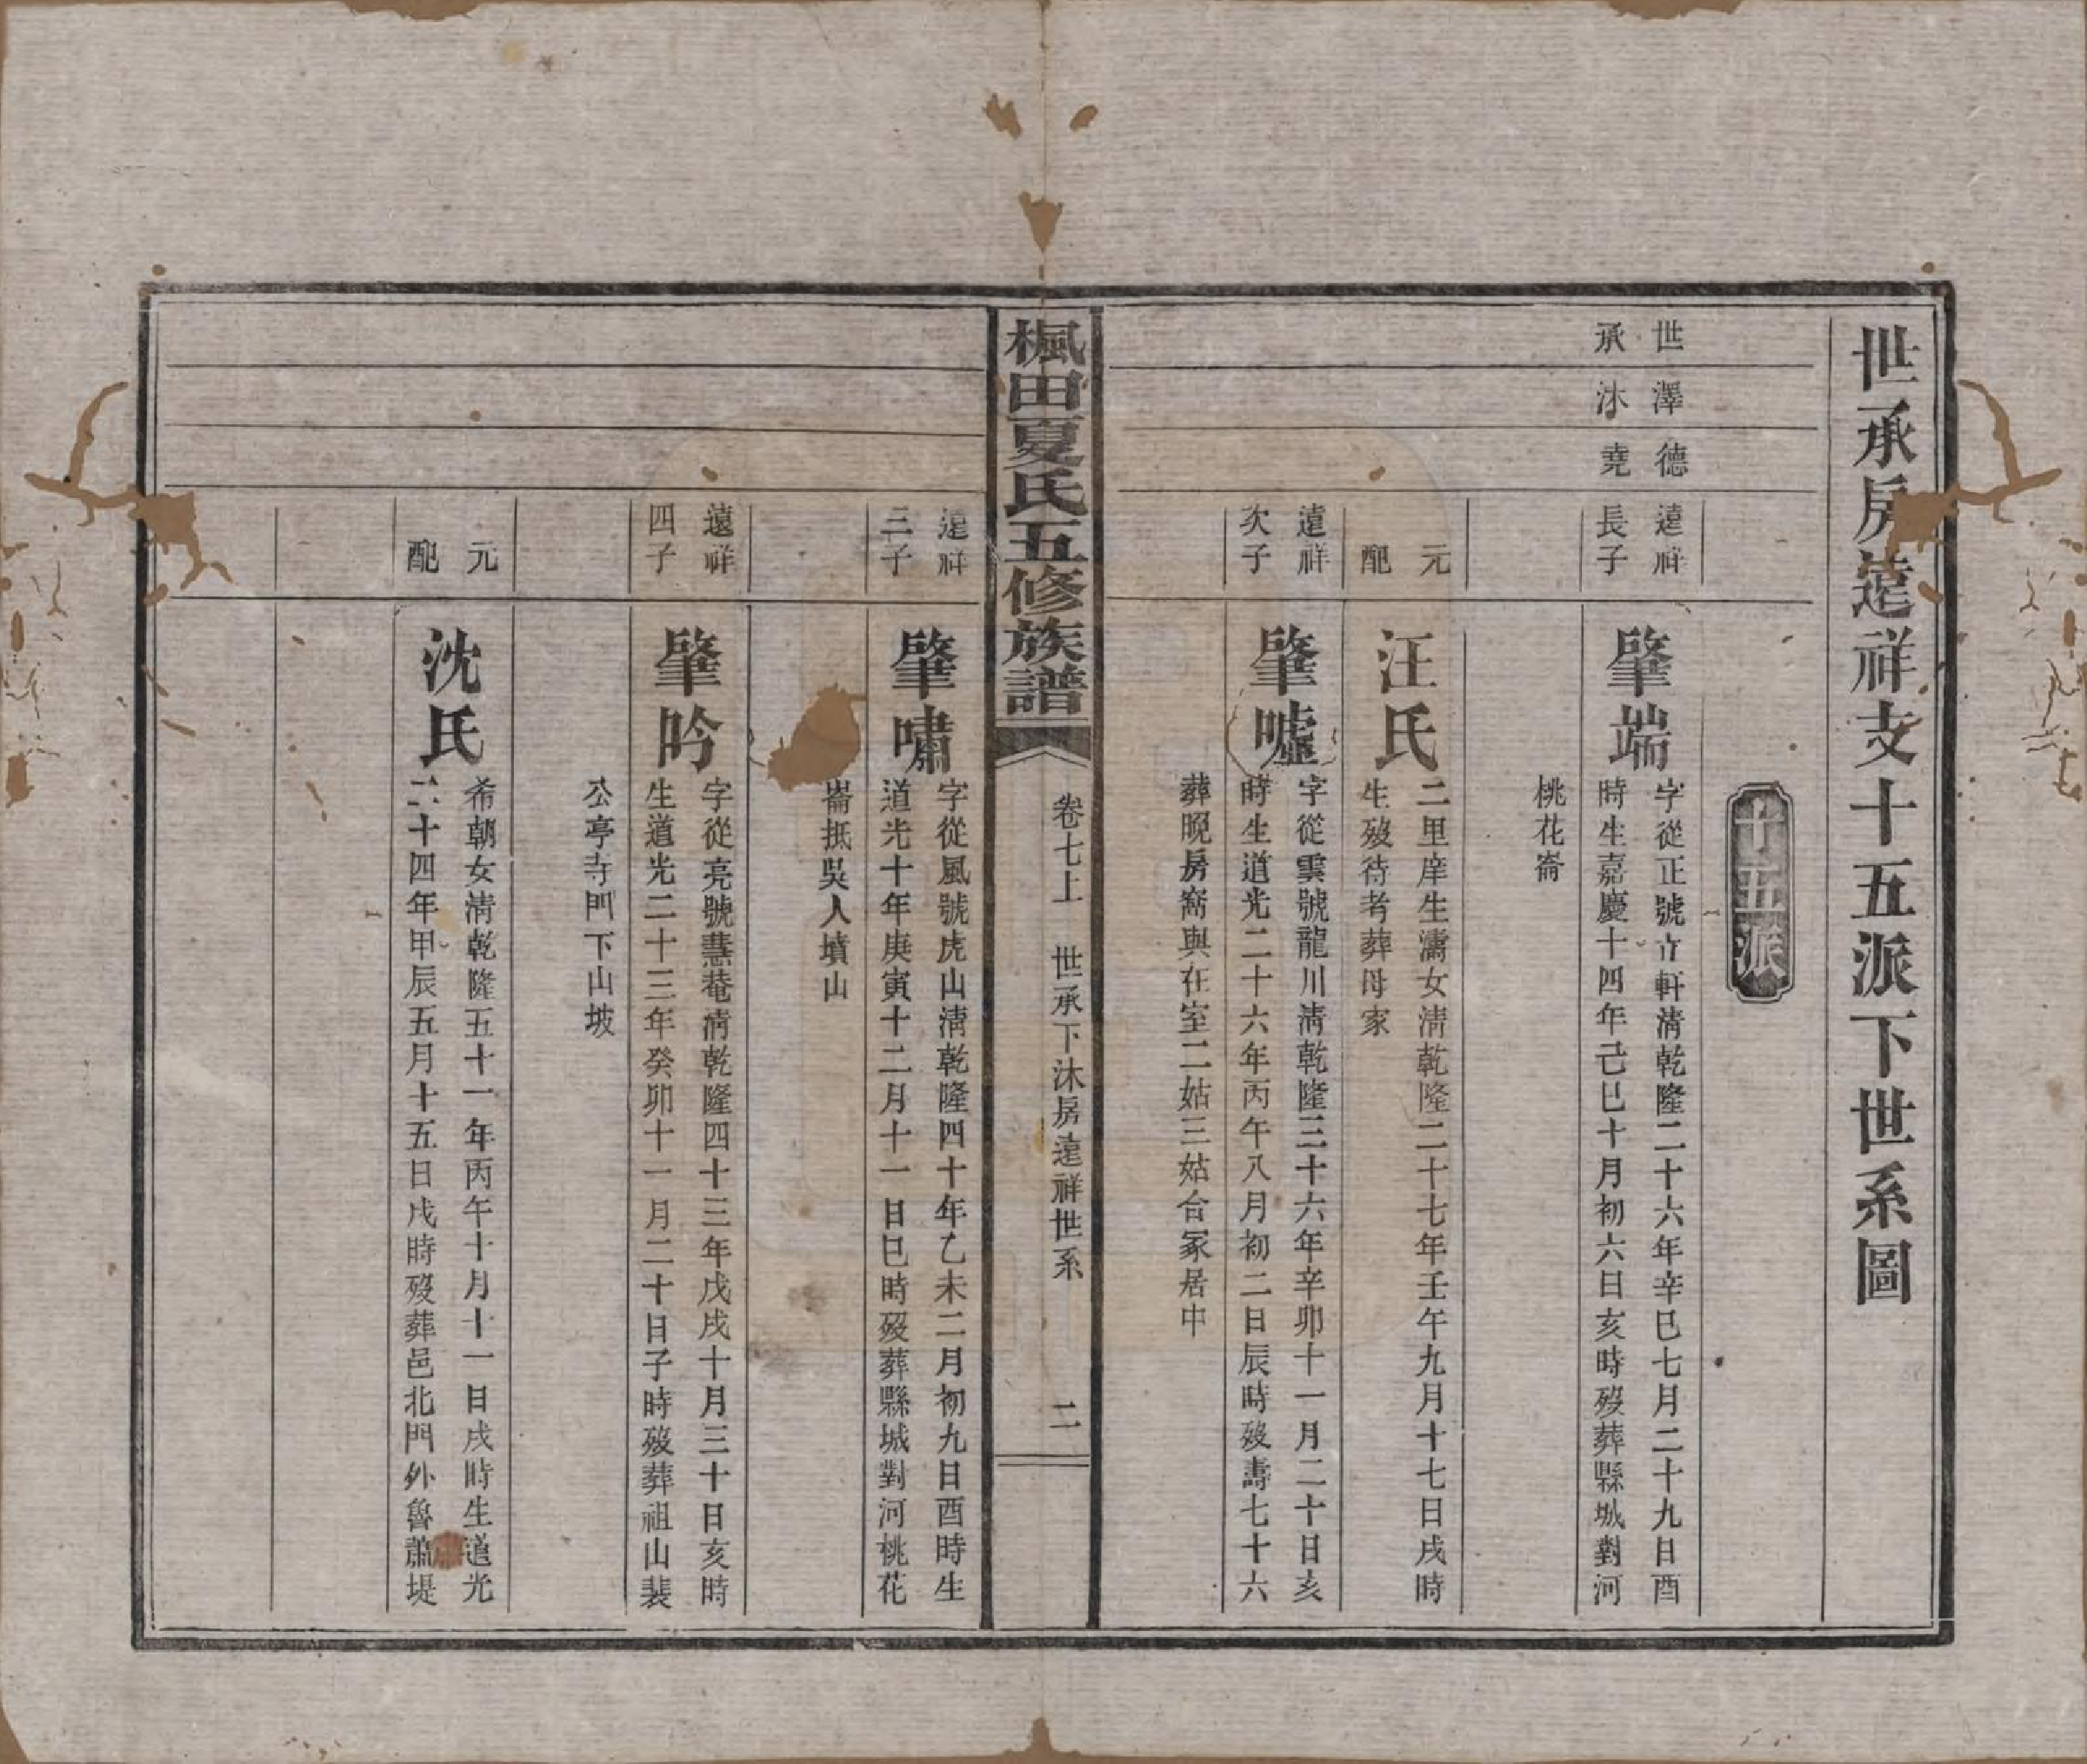 世承房遠祥支十五派下世系圖
十五派
世澤德
承沐堯
遠祥
長子
肇端
字從正號竹軒清乾隆二十六年辛巳七月二十九日酉
時生嘉慶十四年己巳十月初六日亥時歿葬縣城對河
桃花崙
元
配
汪氏
二里庠生濤女清乾隆二十七年壬午九月十七日戌時
生歿待考葬母家
遠祥
次子
肇嘘
字從雲號龍川清乾隆三十六年辛卯十一月二十日亥
時生道光二十六年丙午八月初二日辰時歿壽七十六
葬晚房嵛與在室二姑三姑合冢居中
楓田夏氏五修族譜
卷七上
世承下沐房遠祥世系
二
遠祥
三子
肇嘯
字從風號虎山清乾隆四十年乙未二月初九日酉時生
道光十年庚寅十二月十一日巳時歿葬縣城對河桃花
崙抵吳人墳山
遠祥
四子
肇吟
字從亮號慧菴清乾隆四十三年戊戌十月三十日亥時
生道光二十三年癸卯十一月二十日子時歿葬祖山裴
公亭寺門下山坡
元
配
沈氏
希朝女清乾隆五十一年丙午十月十一日戌時生道光
二十四年甲辰五月十五日戌時歿葬邑北門外魯蕭堤